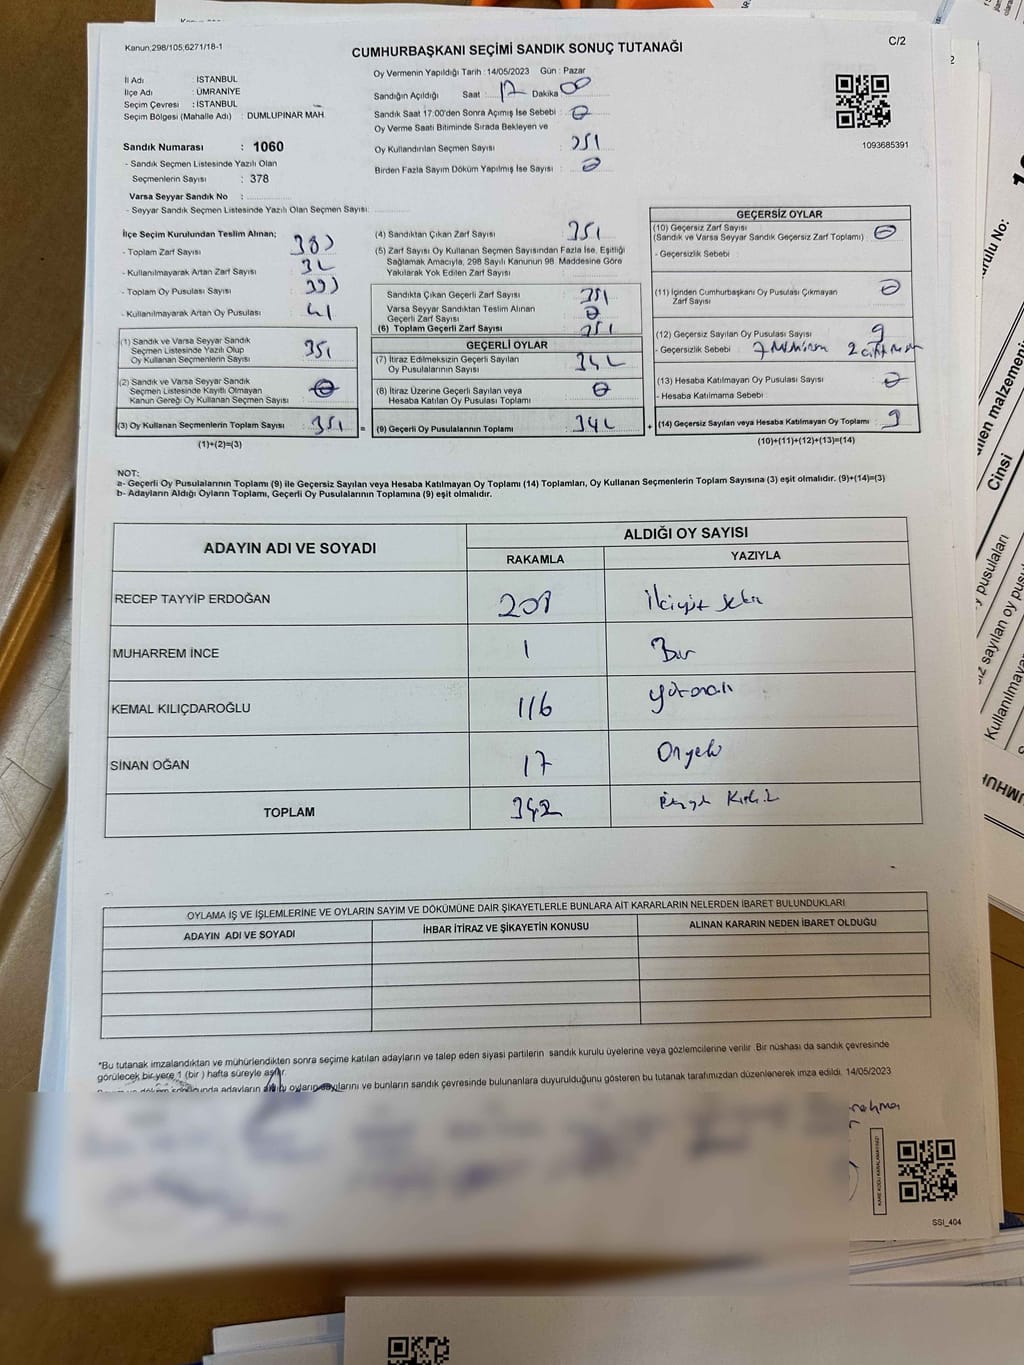 Kanun,298/105,6271/18-1
CUMHURBAŞKANI SEÇİMİ SANDIK SONUÇ TUTANAĞI
C/2
İl Adı : İSTANBUL
İlçe Adı : ÜMRANİYE
Seçim Çevresi : İSTANBUL
Seçim Bölgesi (Mahalle Adı) : DUMLUPINAR MAH.
Sandık Numarası : 1060
- Sandık Seçmen Listesinde Yazılı Olan
Seçmenlerin Sayısı : 378
Varsa Seyyar Sandık No :
- Seyyar Sandık Seçmen Listesinde Yazılı Olan Seçmen Sayısı:
Oy Vermenin Yapıldığı Tarih : 14/05/2023 Gün : Pazar
Sandığın Açıldığı Saat : 17 Dakika 00
Sandık Saat 17:00'den Sonra Açımış İse Sebebi : 0
Oy Verme Saati Bitiminde Sırada Bekleyen ve
Oy Kullandırılan Seçmen Sayısı : 351
Birden Fazla Sayım Döküm Yapılmış İse Sayısı : 0
1093685391
İlçe Seçim Kurulundan Teslim Alınan;
- Toplam Zarf Sayısı :
- Kullanılmayarak Artan Zarf Sayısı :
- Toplam Oy Pusulası Sayısı :
- Kullanılmayarak Artan Oy Pusulası : 41
(1) Sandık ve Varsa Seyyar Sandık
Seçmen Listesinde Yazılı Olup
Oy Kullanan Seçmenlerin Sayısı : 351
(2) Sandık ve Varsa Seyyar Sandık
Seçmen Listesinde Kayıtlı Olmayan
Kanun Gereği Oy Kullanan Seçmen Sayısı : 0
(3) Oy Kullanan Seçmenlerin Toplam Sayısı : 351
(1)+(2)=(3)
(4) Sandıktan Çıkan Zarf Sayısı : 351
(5) Zarf Sayısı Oy Kullanan Seçmen Sayısından Fazla İse, Eşitliği
Sağlamak Amacıyla, 298 Sayılı Kanunun 98. Maddesine Göre
Yakılarak Yok Edilen Zarf Sayısı :
Sandıkta Çıkan Geçerli Zarf Sayısı : 351
Varsa Seyyar Sandıktan Teslim Alınan
Geçerli Zarf Sayısı : 0
(6) Toplam Geçerli Zarf Sayısı : 351
GEÇERLİ OYLAR
(7) İtiraz Edilmeksizin Geçerli Sayılan
Oy Pusulalarının Sayısı : 342
(8) İtiraz Üzerine Geçerli Sayılan veya
Hesaba Katılan Oy Pusulası Toplamı : 0
(9) Geçerli Oy Pusulalarının Toplamı : 342
GEÇERSİZ OYLAR
(10) Geçersiz Zarf Sayısı
(Sandık ve Varsa Seyyar Sandık Geçersiz Zarf Toplamı) : 0
- Geçersizlik Sebebi :
(11) İçinden Cumhurbaşkanı Oy Pusulası Çıkmayan
Zarf Sayısı : 0
(12) Geçersiz Sayılan Oy Pusulası Sayısı : 9
- Geçersizlik Sebebi : 7 2
(13) Hesaba Katılmayan Oy Pusulası Sayısı : 0
- Hesaba Katılmama Sebebi :
(14) Geçersiz Sayılan veya Hesaba Katılmayan Oy Toplamı : 9
(10)+(11)+(12)+(13)=(14)
NOT:
a- Geçerli Oy Pusulalarının Toplamı (9) ile Geçersiz Sayılan veya Hesaba Katılmayan Oy Toplamı (14) Toplamları, Oy Kullanan Seçmenlerin Toplam Sayısına (3) eşit olmalıdır. (9)+(14)=(3)
b- Adayların Aldığı Oyların Toplamı, Geçerli Oy Pusulalarının Toplamına (9) eşit olmalıdır.
ADAYIN ADI VE SOYADI
ALDIĞI OY SAYISI
RAKAMLA YAZIYLA
RECEP TAYYİP ERDOĞAN 208 ikiyüz sekiz
MUHARREM İNCE 1 Bir
KEMAL KILIÇDAROĞLU 116 yüzonaltı
SİNAN OĞAN 17 Onyedi
TOPLAM 342
OYLAMA İŞ VE İŞLEMLERİNE VE OYLARIN SAYIM VE DÖKÜMÜNE DAİR ŞİKAYETLERLE BUNLARA AİT KARARLARIN NELERDEN İBARET BULUNDUKLARI
ADAYIN ADI VE SOYADI İHBAR İTİRAZ VE ŞİKAYETİN KONUSU ALINAN KARARIN NEDEN İBARET OLDUĞU
*Bu tutanak imzalandıktan ve mühürlendikten sonra seçime katılan adayların ve talep eden siyasi partilerin sandık kurulu üyelerine veya gözlemcilerine verilir. Bir nüshası da sandık çevresinde
görülecek bir yere 1 (bir ) hafta süreyle asılır.
adayların aldığı oyların sayılarını ve bunların sandık çevresinde bulunanlara duyurulduğunu gösteren bu tutanak tarafımızdan düzenlenerek imza edildi. 14/05/2023
KARE KODU KARALAMAYINIZ!
SSI_404
urulu No:
Cinsi
y pusulaları
sayılan oy
Kullanılmaya